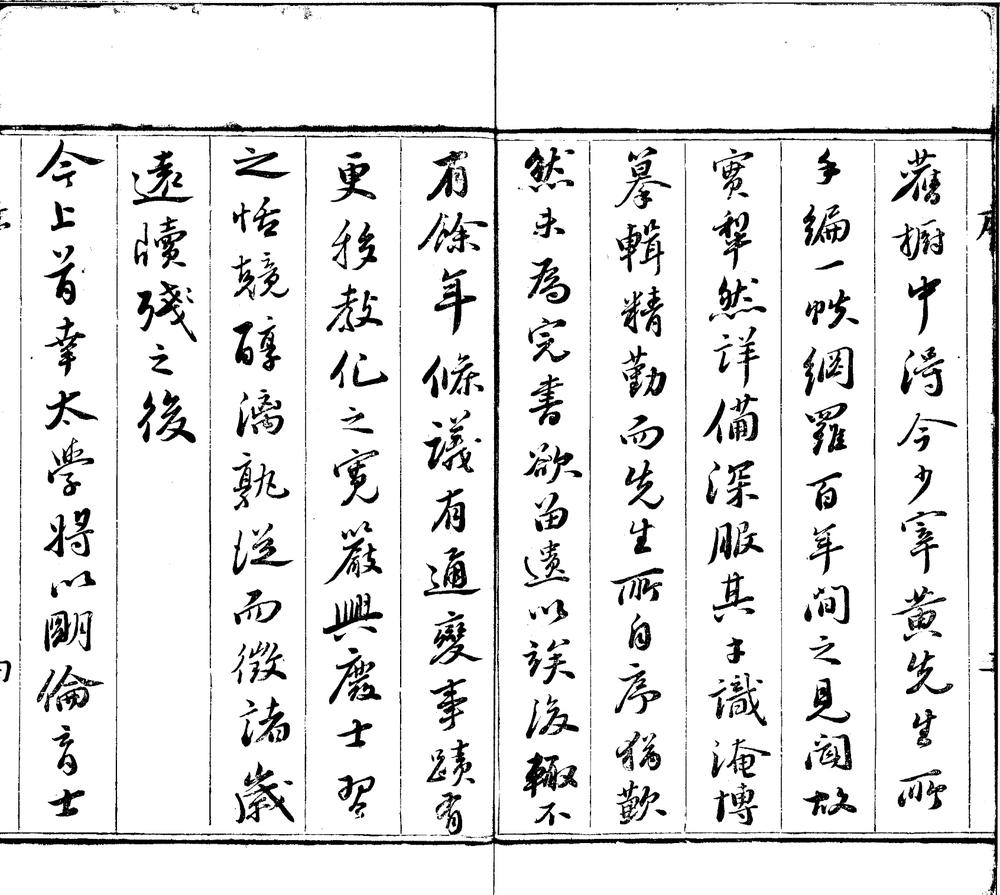 舊橱中得今少宰黄先生所
手編一帙網羅百年間之見聞故
實犂然詳備深服其才識淹博
摹輯精勤而先生所自序猶歎
然未為完書欲留遺以俟後輙不
有餘年條議有通變事蹟有
更移教化之寛嚴興廢士習
之恬競醇漓孰從而徵諸歲
遠牘殘之後
今上首幸太學將以明倫育士